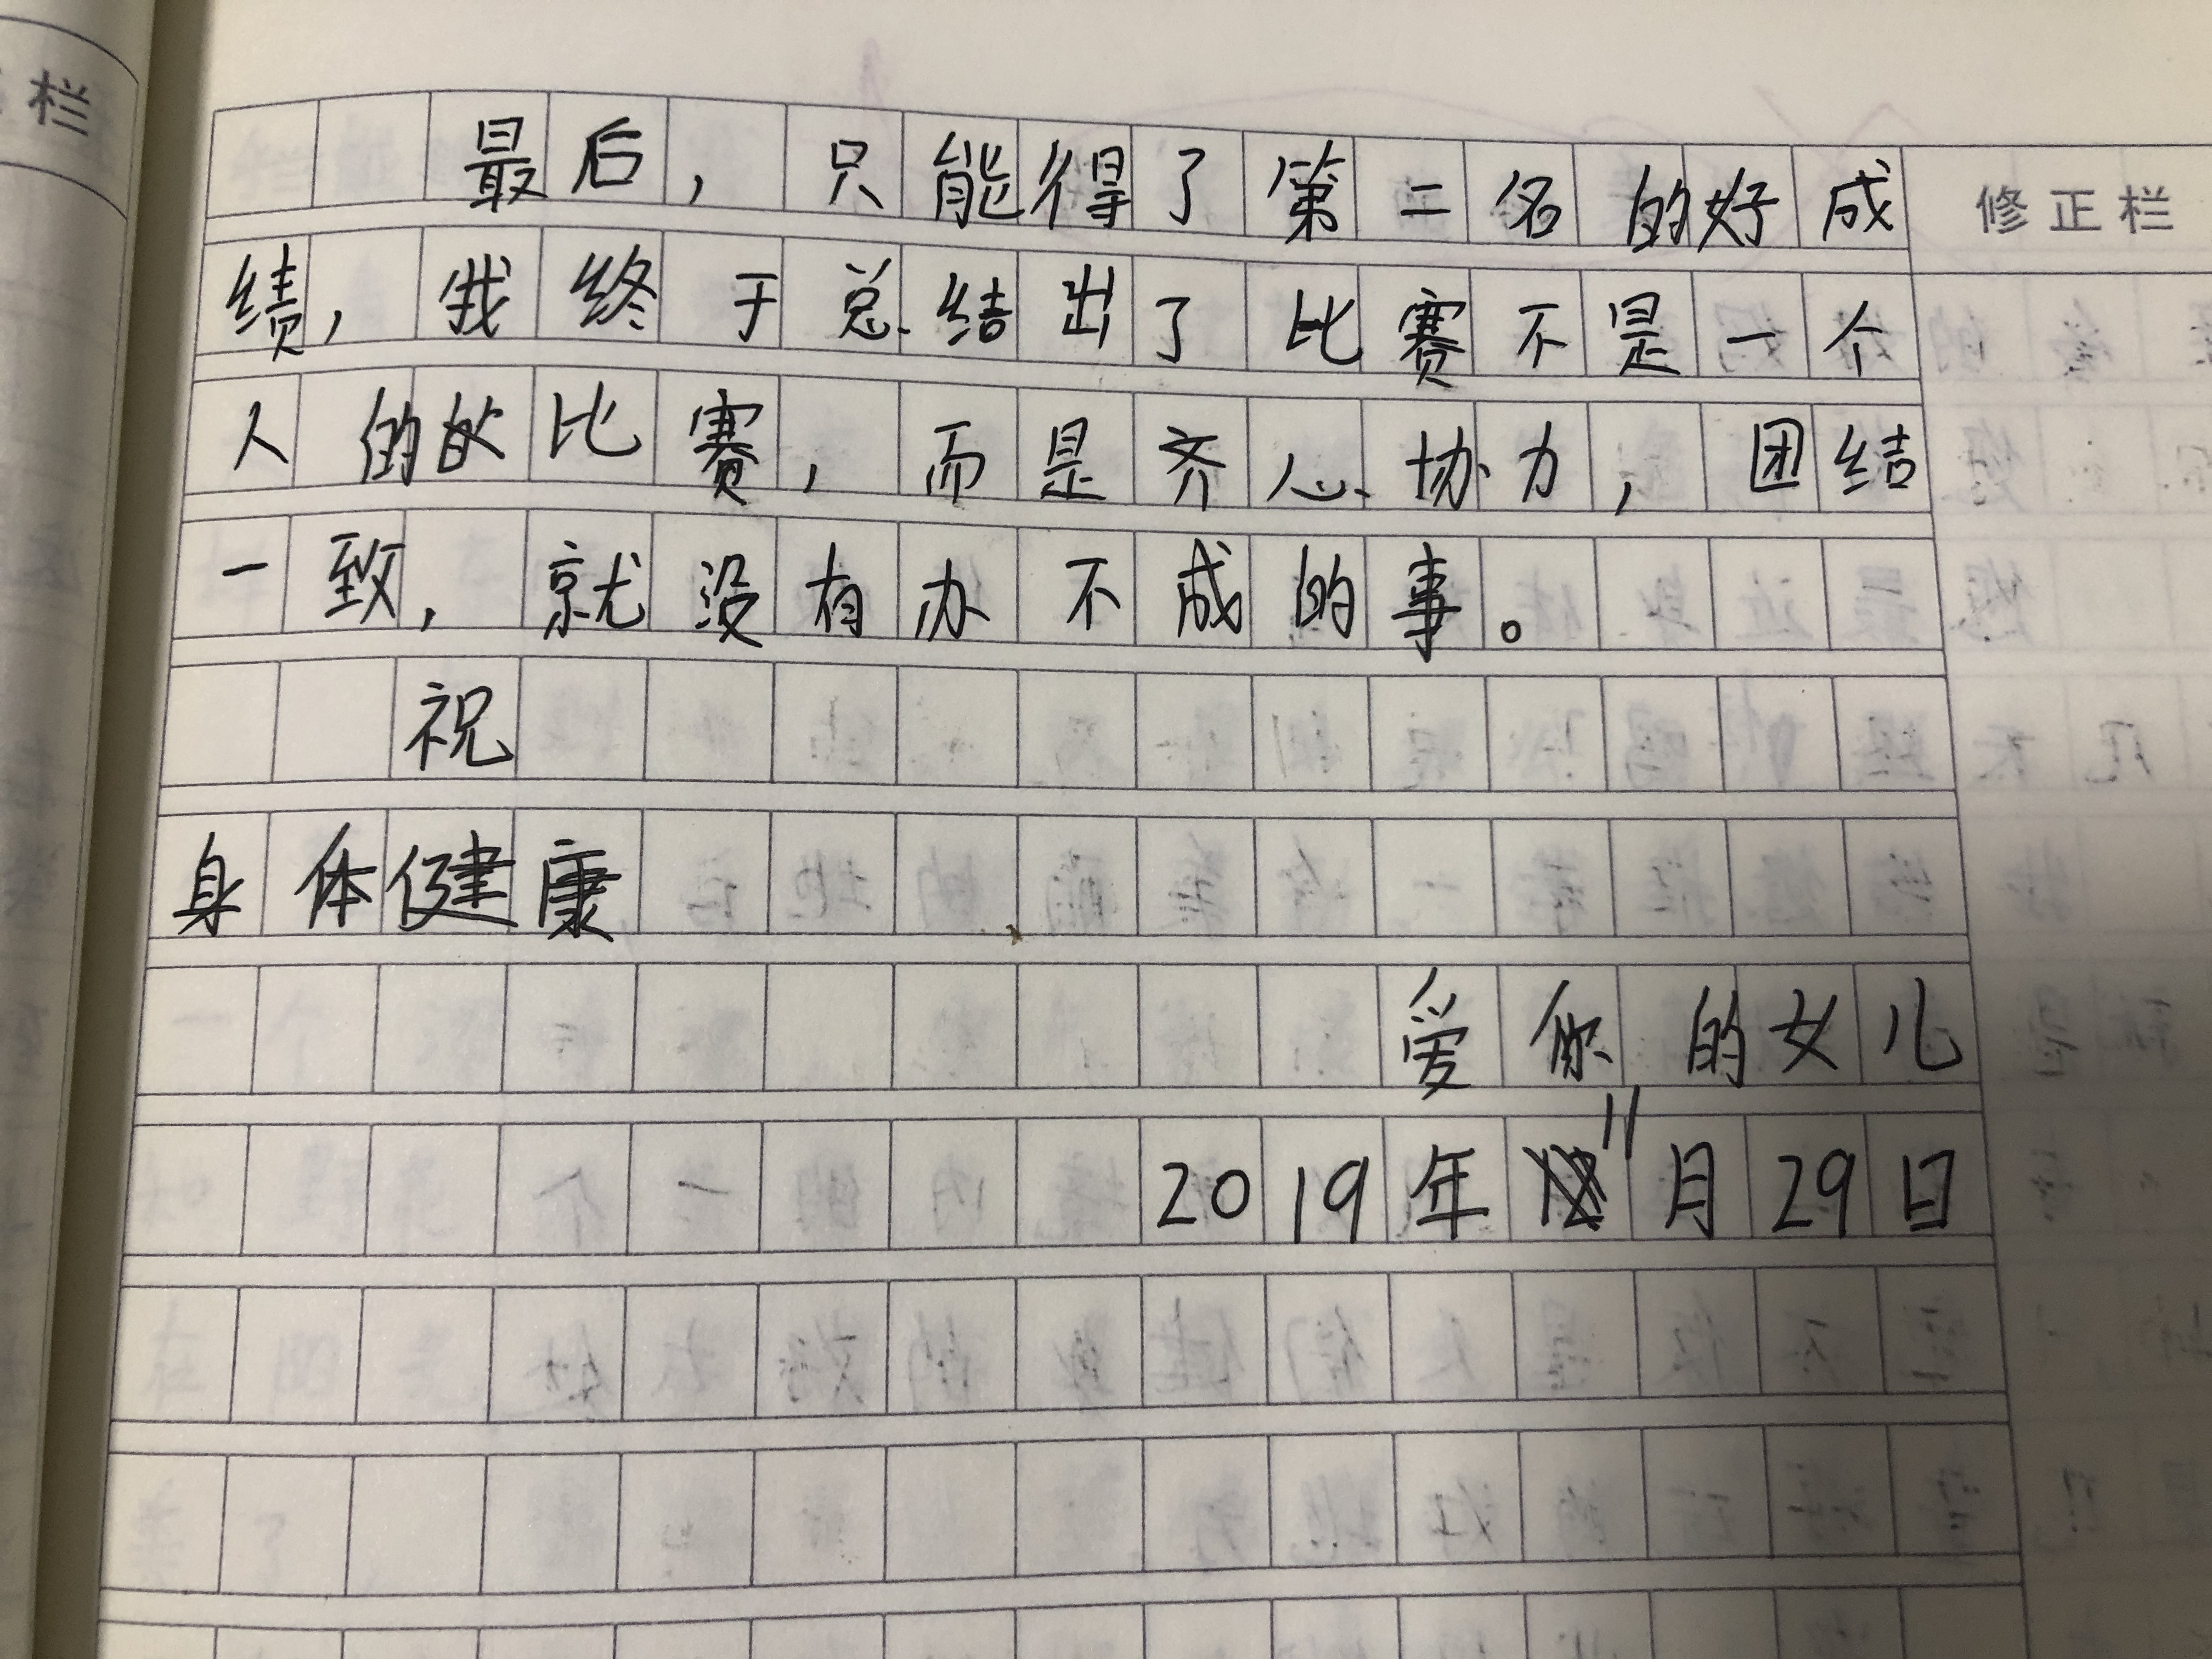 栏
修正栏
最后，只能得了第二名的好成
绩，我终于总结出了比赛不是一个
人的比赛，而是齐心协力，团结
一致，就没有办不成的事。
祝
身体健康
爱你的女儿
2019年11月29日